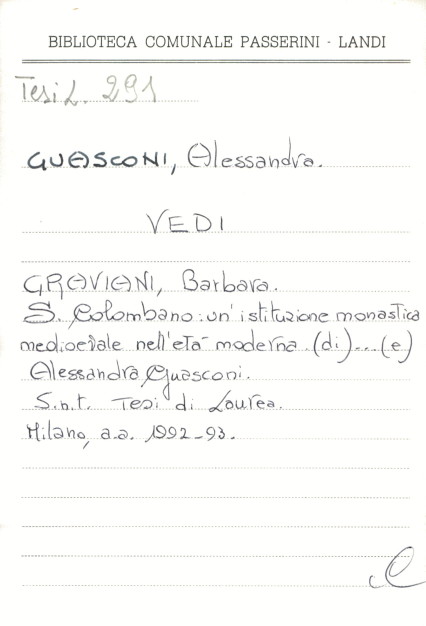 BIBLIOTECA COMUNALE PASSERINI - LANDI
Tesi L. 291
GUASCONI, Alessandra.
VEDI
GRAVIANI, Barbara.
S. Colombano: un'istituzione monastica
medioevale nell'età moderna. (di)... (e)
Alessandra Guasconi.
S.n.t. Tesi di Laurea.
Milano, a.a. 1992-93.